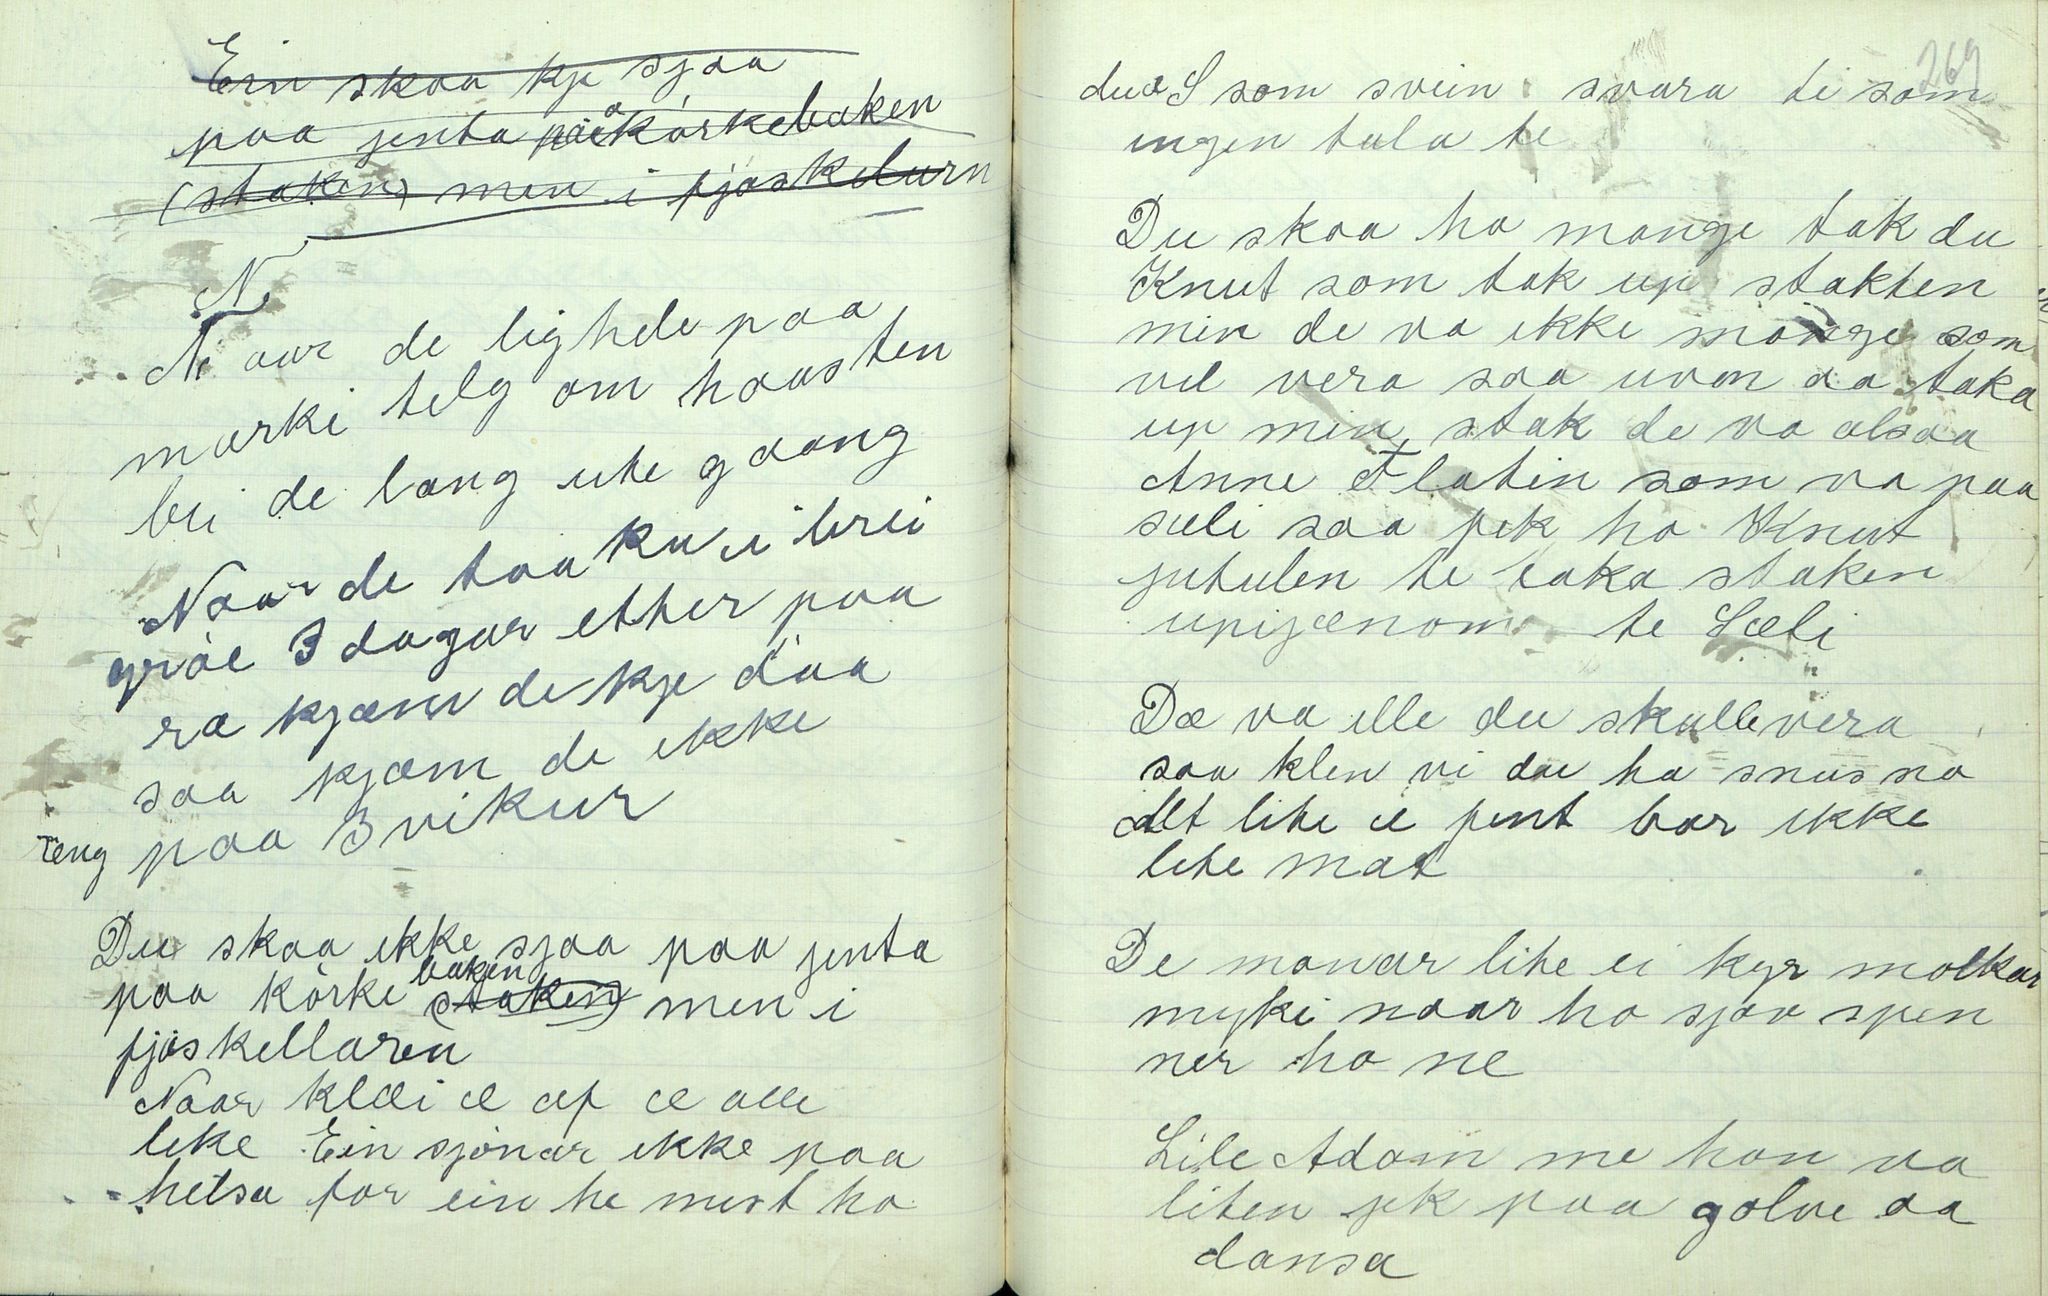 Ein skaa kje sjaa
paa jenta paa körkebaken
(staken) men i fjöskelurn
N
Ni aar de lighde paa
marki telg om haasten
bei de lang uhe gaang
Naar de taaku i brei
gröe 3 dagar ether paa
ra kjæm de kje daa
saa kjæm de ikke
paa 3 vikur
reng
Du skaa ikke sjaa paa jenta
paa körke baken (staken) men i
fjöskellaren
Naar klæi æ af æ alle
like Ein sjönar ikke paa
helsa for ein he mist ho
269
du S som svein svara ti som
ingen tala te
Du skaa ha mange tak du
Knut som tok up stakken
min de va ikke mange som
vil vera saa uvon aa taka
up min stak de va alsaa
Anne Flatin som va paa
sæli saa fek ho Knut
jutulen te taka staken
upigjænom te Sæli
Dæ va ille du skulle vera
saa klen vi du ha snus na
Alt lite æ pent bar ikke
lite mat
De monar lite ei kyr molkar
mykje naar ho sjav spen
ner ho ne
Lile Adam me han va
liten jek paa golve aa
dansa